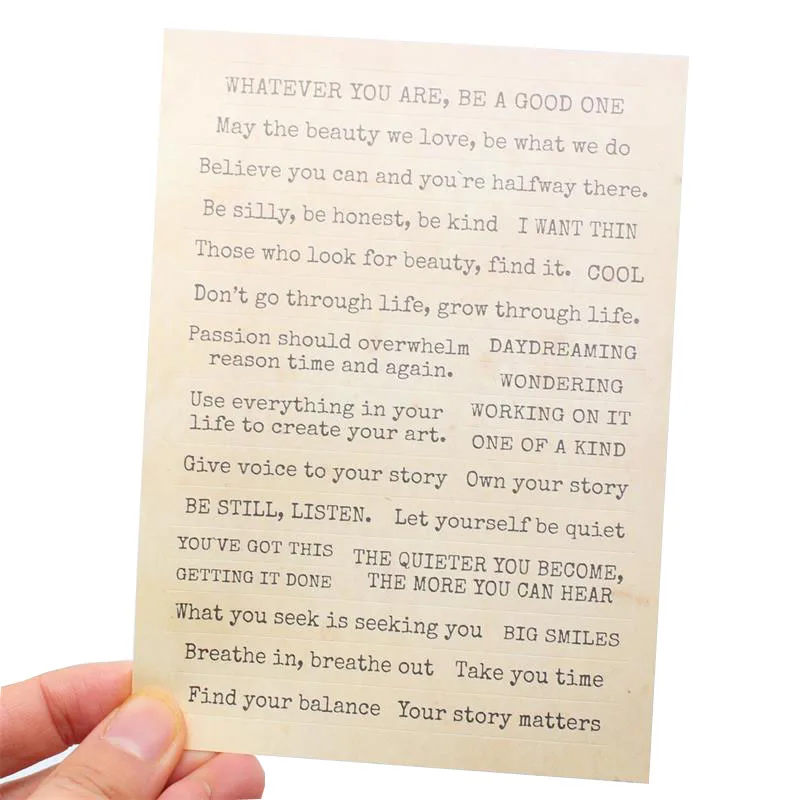 WHATEVER YOU ARE, BE A GOOD ONE
May the beauty we love, be what we do
Believe you can and you`re halfway there.
Be silly, be honest, be kind I WANT THIN
Those who look for beauty, find it. COOL
Don't go through life, grow through life.
Passion should overwhelm
reason time and again.
DAYDREAMING
WONDERING
Use everything in your
life to create your art.
WORKING ON IT
ONE OF A KIND
Give voice to your story Own your story
BE STILL, LISTEN. Let yourself be quiet
YOU`VE GOT THIS
GETTING IT DONE
THE QUIETER YOU BECOME,
THE MORE YOU CAN HEAR
What you seek is seeking you BIG SMILES
Breathe in, breathe out Take you time
Find your balance Your story matters